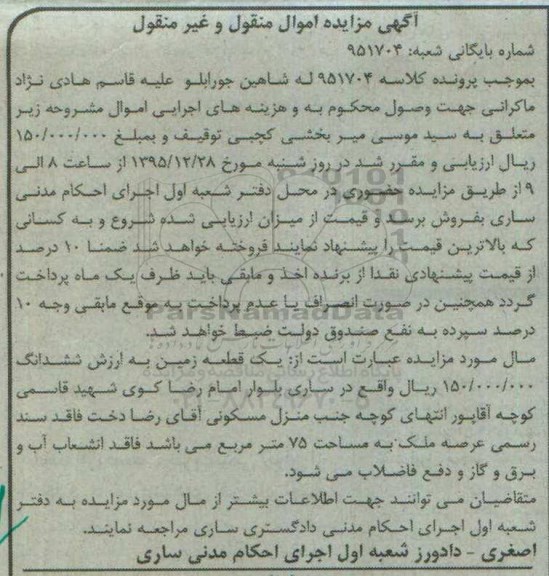 آگهی مزایده اموال منقول و غیر منقول
شماره بایگانی شعبه: ۹۵۱۷۰۴
بموجب پرونده کلاسه ۹۵۱۷۰۴ له شاهین جورابلو علیه قاسم هادی نژاد
ماکرانی جهت وصول محکوم به و هزینه های اجرایی اموال مشروحه زیر
متعلق به سید موسی میر بخشی کچبی توقیف و بمبلغ ۱۵۰/۰۰۰/۰۰۰
ریال ارزیابی و مقرر شد در روز شنبه مورخ ۱۳۹۵/۱۲/۲۸ از ساعت ۸ الی
۹ از طریق مزایده حضوری در محل دفتر شعبه اول اجرای احکام مدنی
ساری بفروش برسد و قیمت از میزان ارزیابی شده شروع و به کسانی
که بالاترین قیمت را پیشنهاد نمایند فروخته خواهد شد ضمنا ۱۰ درصد
از قیمت پیشنهادی نقدا از برنده اخذ و مابقی باید ظرف یک ماه پرداخت
گردد همچنین در صورت انصراف یا عدم پرداخت به موقع مابقی وجه ۱۰
درصد سپرده به نفع صندوق دولت ضبط خواهد شد.
مال مورد مزایده عبارت است از: یک قطعه زمین به ارزش ششدانگ
۱۵۰/۰۰۰/۰۰۰ ریال واقع در ساری بلوار امام رضا کوی شهید قاسمی
کوچه آقاپور انتهای کوچه جنب منزل مسکونی آقای رضا دخت فاقد سند
رسمی عرصه ملک به مساحت ۷۵ متر مربع می باشد فاقد انشعاب آب و
برق و گاز و دفع فاضلاب می شود.
متقاضیان می توانند جهت اطلاعات بیشتر از مال مورد مزایده به دفتر
شعبه اول اجرای احکام مدنی دادگستری ساری مراجعه نمایند.
اصغری - دادورز شعبه اول اجرای احکام مدنی ساری
ParsNamadData